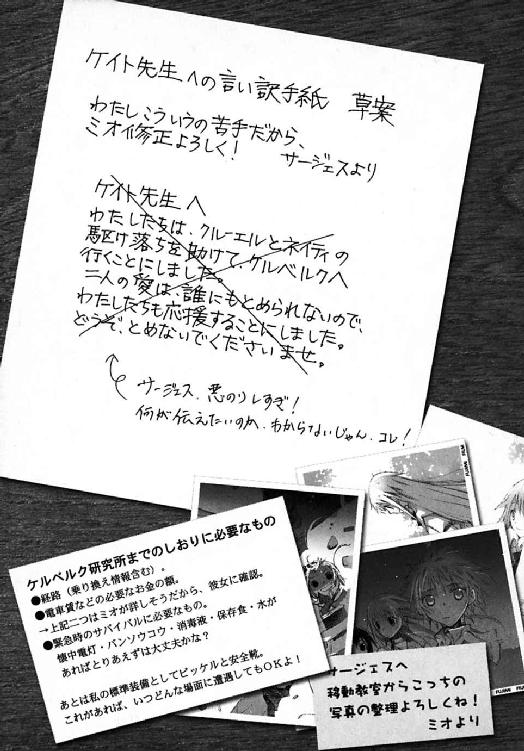 ケイト先生への言い訳手紙　草案
わたしこういうの苦手だから、
ミオ修正よろしく！　サージェスより
ケイト先生へ
わたしたちは、クルーエルとネイティの
駆け落ちを助けて、ケルベルクへ
行くことにしました。
二人の愛は、誰にもとめられないので、
わたしたちも応援することにしました。
どうぞ、とめないでくださいませ。
サージェス、悪のりしすぎ！
何が伝えたいのか、わからないじゃん、コレ！
FUJIMI FILM
ケルベルク研究所までのしおりに必要なもの
●経路（乗り換え情報含む）。
●電車賃などの必要なお金の額。
→上記二つはミオが詳しそうだから、彼女に確認。
●緊急時のサバイバルに必要なもの。
懐中電灯・バンソウコウ・消毒液・保存食・水が
あればとりあえずは大丈夫かな？
あとは私の標準装備としてピッケルと安全靴。
これがあれば、いつどんな場面に遭遇してもＯＫよ！
サージェスへ
移動教室からこっちの
写真の整理よろしくね！
ミオより